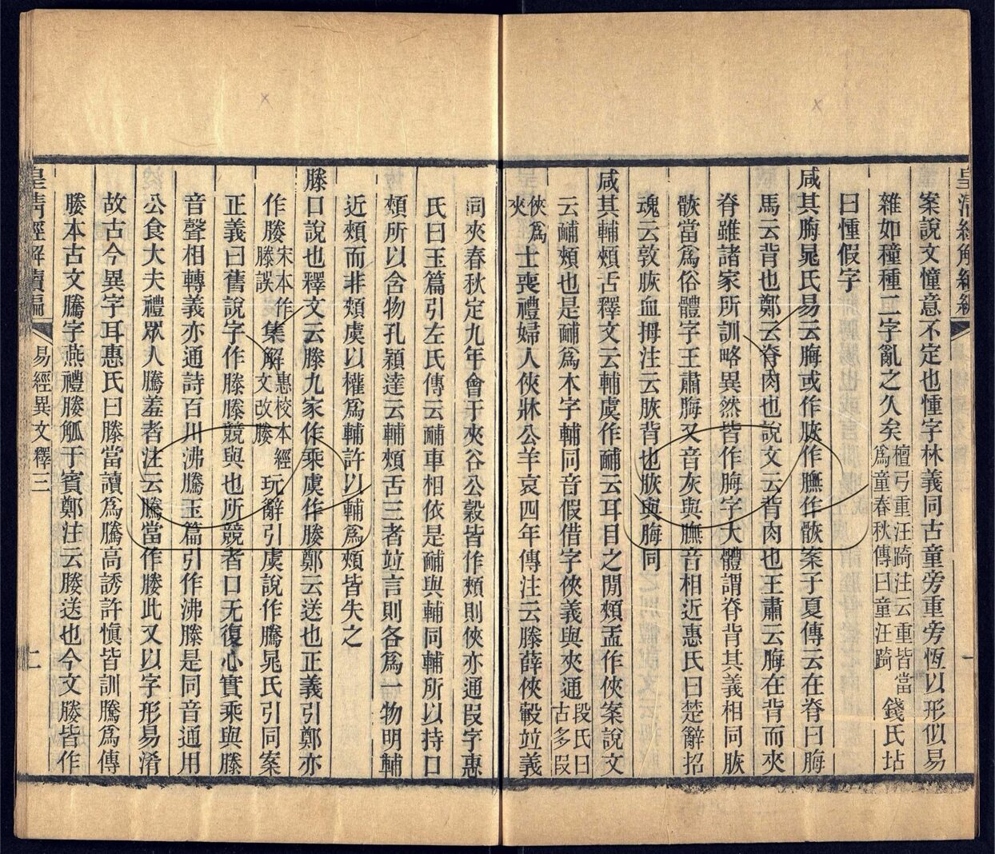 案說文憧意不定也憧字林義同古童旁重旁恆以形似易
雜如種穜二字亂之久矣檀弓重汪踦注云重皆當爲童春秋傳曰童汪踦錢氏坫
曰憧假字
咸其脢晁氏易云脢或作脄作膴作㱽案子夏傳云在脊曰脢
馬云背也鄭云脊肉也說文云背肉也王肅云脢在背而夾
脊雖諸家所訓略異然皆作脢字大體謂脊背其義相同脄
㱽當爲俗體字王肅脢又音灰與膴音相近惠氏曰楚辭招
魂云敦脄血拇注云脄背也脄與脢同
咸其輔頰舌釋文云輔虞作䩉云耳目之閒頰孟作俠案說文
云䩉頰也是䩉爲木字輔同音假借字俠義與夾通段氏曰古多叚
俠爲夾士喪禮婦人俠牀公羊哀四年傳注云滕薛俠轂竝義
同夾春秋定九年會于夾谷公穀皆作頰則俠亦通叚字惠
氏曰玉篇引左氏傳云䩉車相依是䩉與輔同輔所以持口
頰所以含物孔穎達云輔頰舌三者竝言則各爲一物明輔
近頰而非頰虞以權爲輔許以輔爲頰皆失之
滕口說也釋文云滕九家作乘虞作媵鄭云送也正義引鄭亦
作媵宋本作滕誤集解惠校本經文改媵玩辭引虞說作騰晁氏引同案
正義曰舊說字作滕滕競與也所競者口无復心實乘與滕
音聲相轉義亦通詩百川沸騰玉篇引作沸滕是同音通用
公食大夫禮眾人騰羞者注云騰當作媵此又以字形易淆
故古今異字耳惠氏曰滕當讀爲騰高誘許愼皆訓騰爲傳
媵本古文騰字燕禮媵觚于賓鄭注云媵送也今文媵皆作
皇清經解續編
易經異文釋三